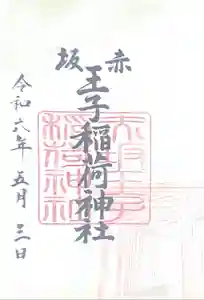 赤坂
王子稲荷神社
令和六年 五月 三日